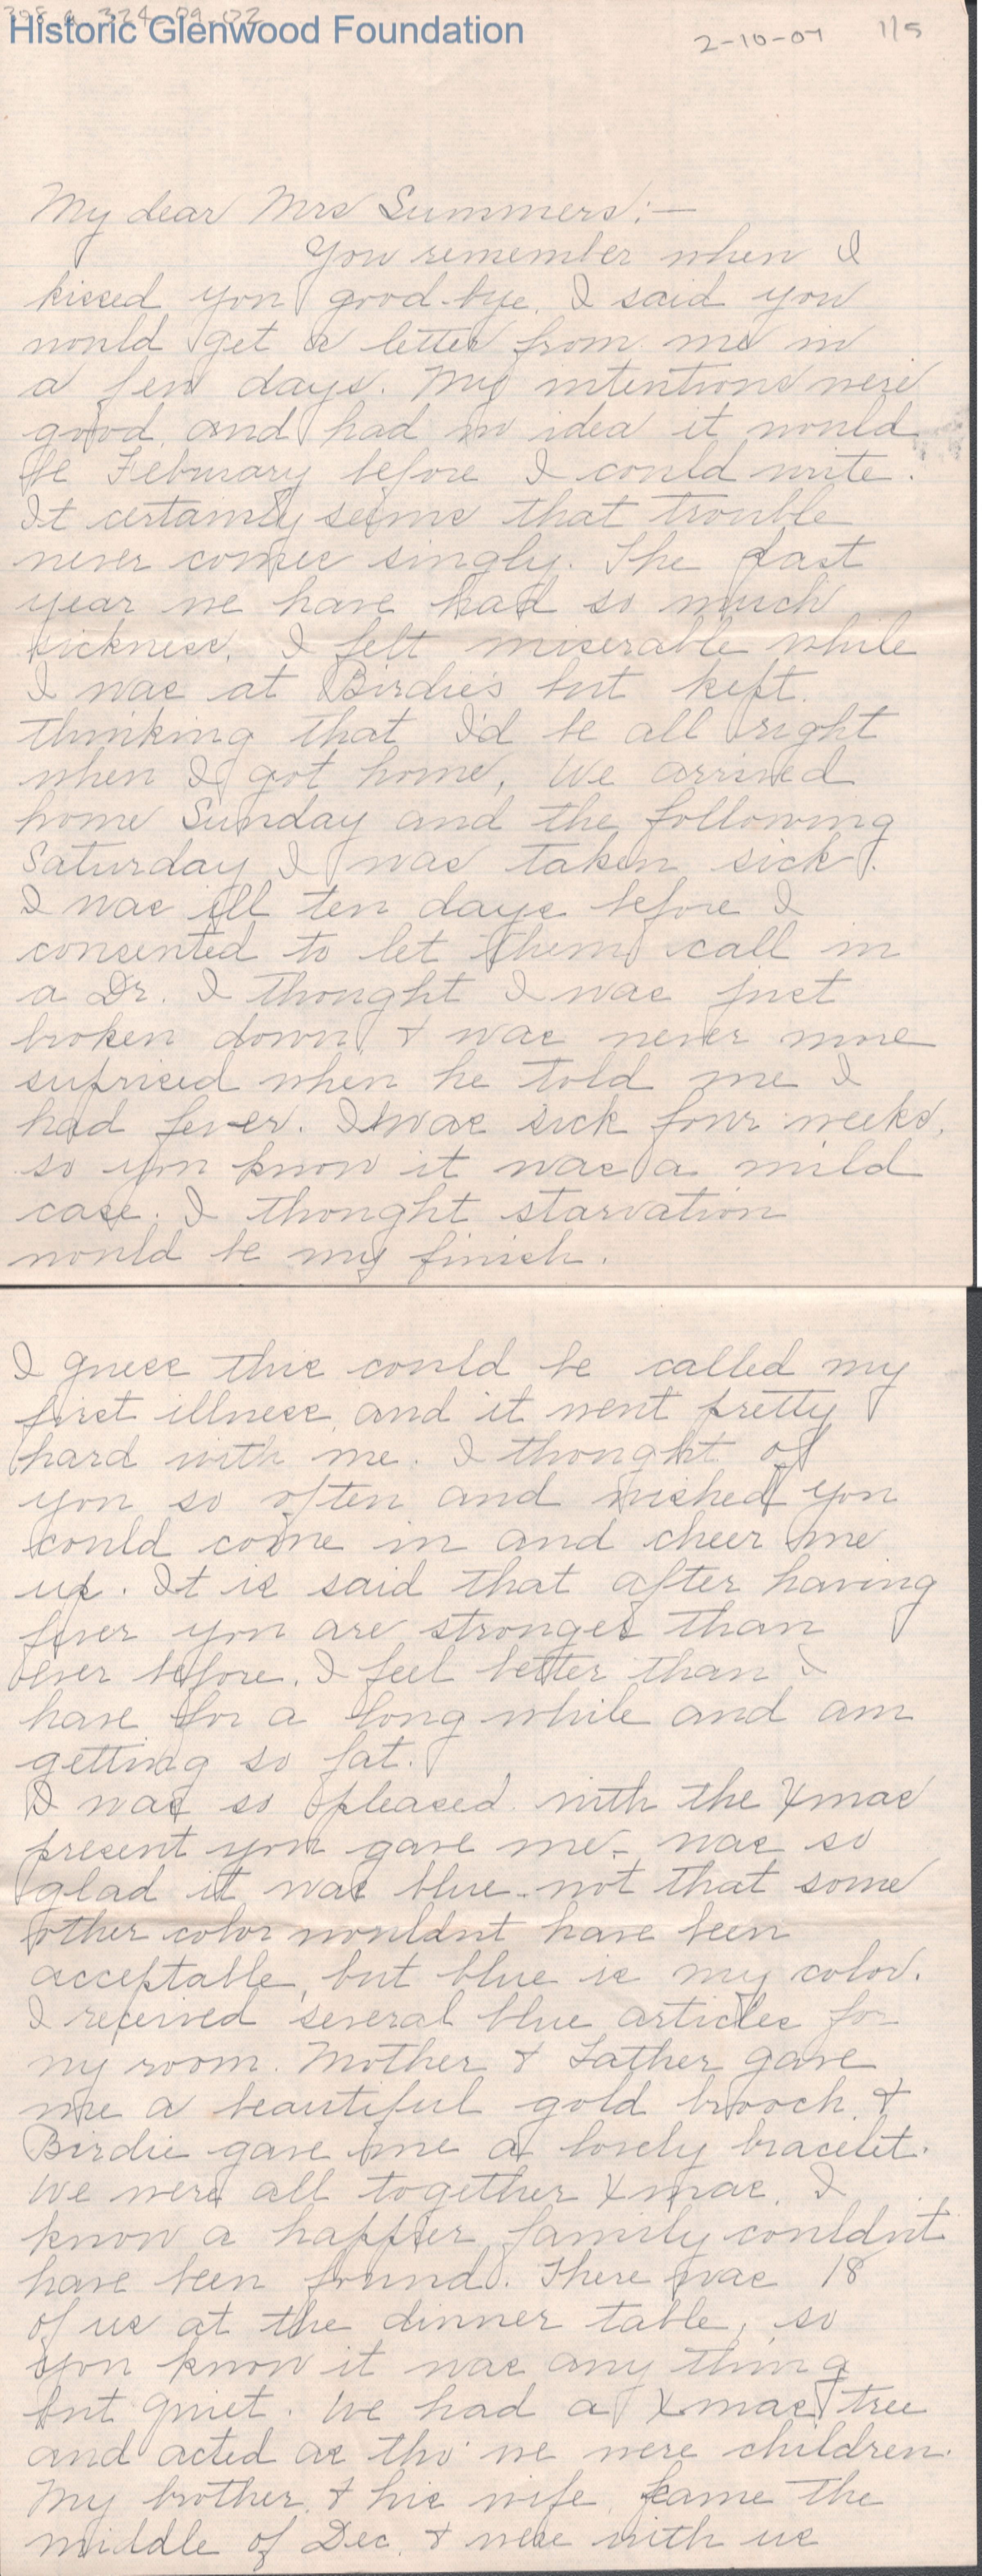 308 a 324-09-02
Historic Glenwood Foundation
2-10-07 1/5
My dear Mrs Summers:—
You remember when I
kissed you good-bye, I said you
would get a letter from me in
a few days. My intentions were
good, and had no idea it would
be Februrary before I could write.
It certainly seems that trouble
never comes singly. The past
year we have had so much
sickness. I felt miserable while
I was at Birdie's but kept
thinking that I'd be all right
when I got home. We arrived
home Sunday and the following
Saturday I was taken sick.
I was ill ten days before I
consented to let them call in
a Dr. I thought I was just
broken down & was never more
suprised when he told me I
had fever. I was sick four weeks,
so you know it was a mild
case. I thought starvation
would be my finish.
I guess this could be called my
first illness, and it went pretty
hard with me. I thought of
you so often and wished you
could come in and cheer me
up. It is said that after having
fever you are stronger than
ever before. I feel better than I
have for a long while and am
getting so fat.
I was so pleased with the Xmas
present you gave me - was so
glad it was blue - not that some
other color wouldnt have been
acceptable, but blue is my color.
I received several blue articles for
my room. Mother & Father gave
me a beautiful gold brooch, &
Birdie gave me a lovely bracelet.
We were all together Xmas. I
know a happier family couldn't
have been found. There was 18
of us at the dinner table, so
you know it was any thing
but quiet. We had a Xmas tree
and acted as tho' we were children.
My brother & his wife came the
middle of Dec. & were with us